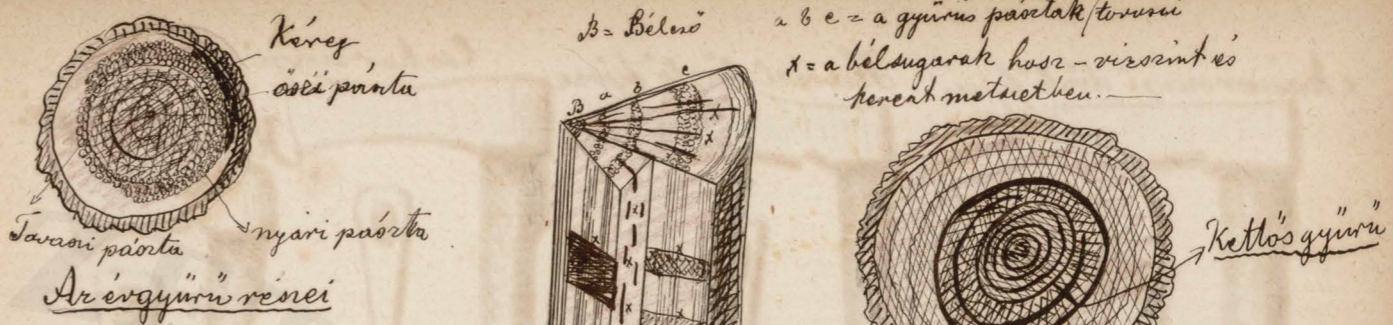 Kéreg
őszi pászta
Tavaszi pászta
nyári pászta
Az évgyűrű részei
B = Bélcső
a b c = a gyűrűs pászták/tavaszi
x = a bélsugarak hosz – vizszint és
kereszt metszetben. —
B a b c
x
x
x
x
x
x
x
x
Kettős gyűrű